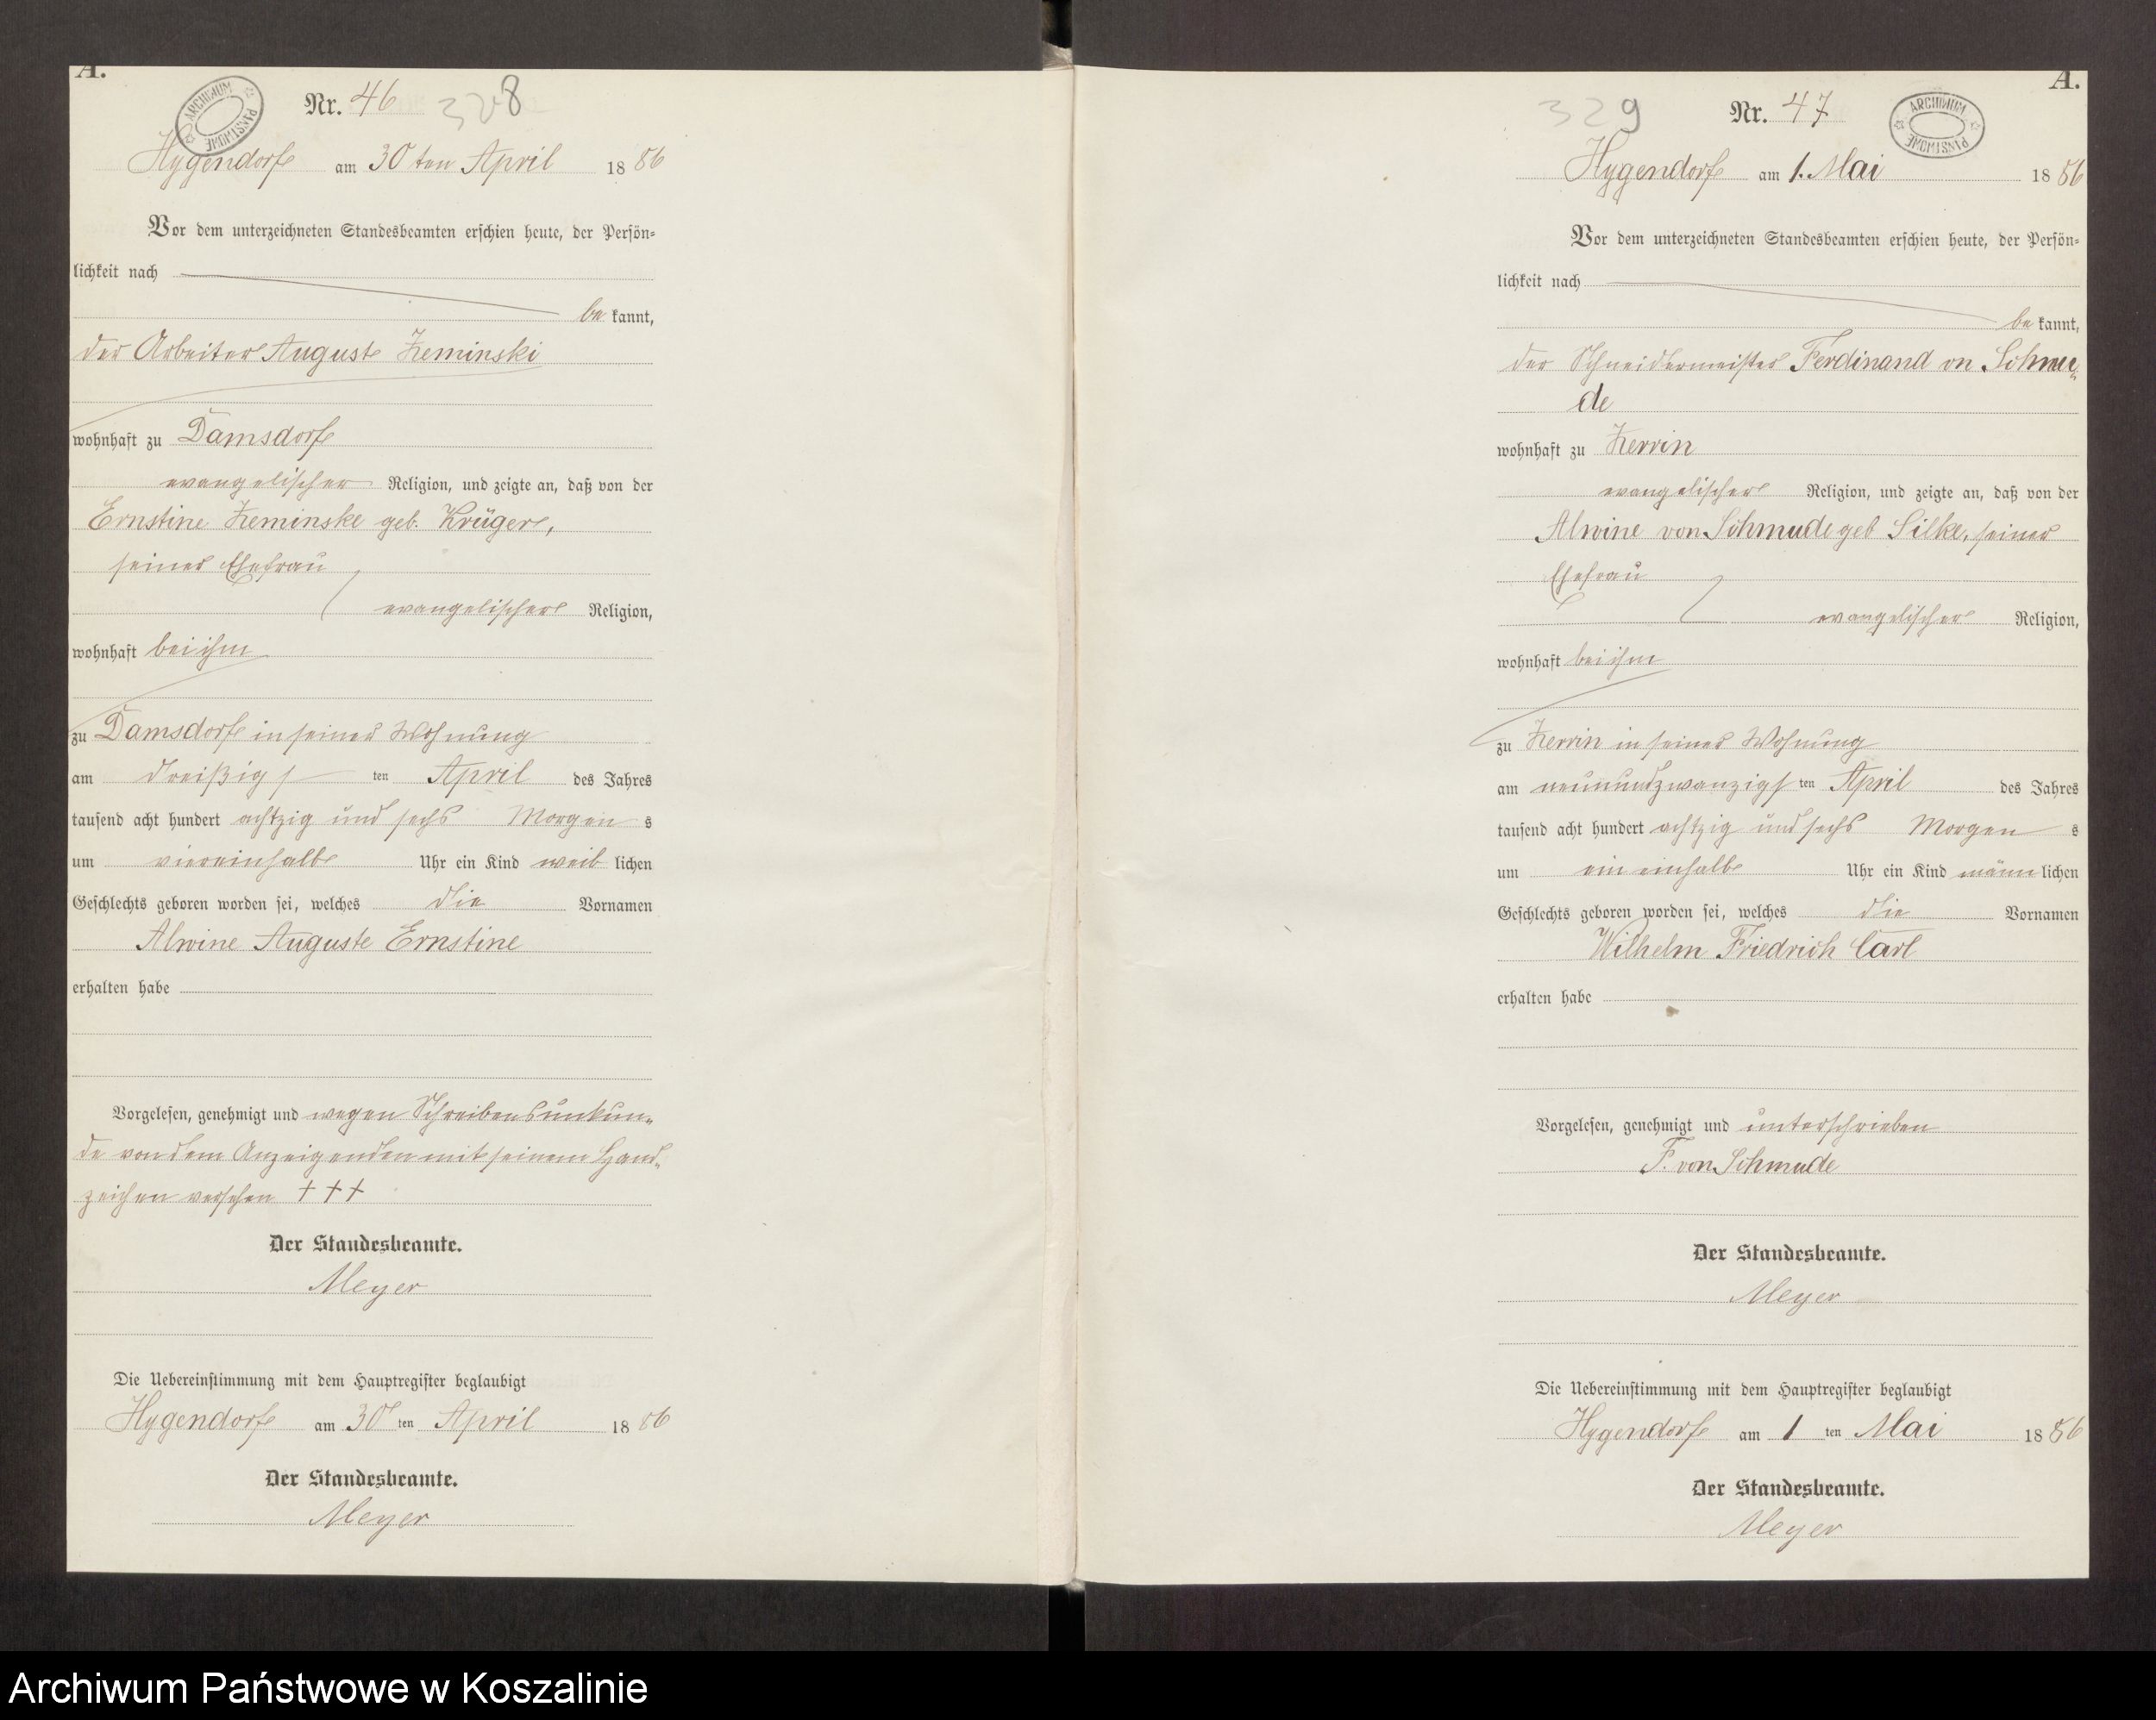 A.
ARCHIWUM PAŃSTWOWE
Nr. 46 328
Hygendorf am 30ten April 1886
Vor dem unterzeichneten Standesbeamten erschien heute, der Persön-
lichkeit nach
be kannt,
der Arbeiter Auguste Zeminski
wohnhaft zu Damsdorf
evangelischer Religion, und zeigte an, daß von der
Ernstine Zeminske geb. Krüger,
seiner Ehefrau
evangelischer Religion,
wohnhaft bei ihm
zu Damsdorf in seiner Wohnung
am dreißigs ten April des Jahres
tausend acht hundert achtzig und sechs Morgen s
um viereinhalb Uhr ein Kind weib lichen
Geschlechts geboren worden sei, welches die Vornamen
Alwine Auguste Ernstine
erhalten habe
Vorgelesen, genehmigt und wegen Schreibensunkun-
de von dem Anzeigenden mit seinem Hand-
zeichen versehen +++
Der Standesbeamte.
Meyer
Die Uebereinstimmung mit dem Hauptregister beglaubigt
Hygendorf am 30 ten April 1886
Der Standesbeamte.
Meyer
A.
329 Nr. 47
ARCHIWUM PAŃSTWOWE
Hygendorf am 1. Mai 1886
Vor dem unterzeichneten Standesbeamten erschien heute, der Persön-
lichkeit nach
be kannt,
der Schneidermeister Ferdinand vn Schmu-
de
wohnhaft zu Zerrin
evangelischer Religion, und zeigte an, daß von der
Alwine von Schmude geb Silke, seiner
Ehefrau
evangelischer Religion,
wohnhaft bei ihm
zu Zerrin in seiner Wohnung
am neunundzwanzigs ten April des Jahres
tausend acht hundert achtzig und sechs Morgen s
um ein einhalb Uhr ein Kind männ lichen
Geschlechts geboren worden sei, welches die Vornamen
Wilhelm Friedrich Carl
erhalten habe
Vorgelesen, genehmigt und unterschrieben
F. von Schmude
Der Standesbeamte.
Meyer
Die Uebereinstimmung mit dem Hauptregister beglaubigt
Hygendorf am 1 ten Mai 1886
Der Standesbeamte.
Meyer
Archiwum Państwowe w Koszalinie